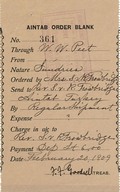 AINTAB ORDER BLANK
No. 361
Through W. W. Peet
From
Nature Sundries
Ordered by Mrs. S. v. R. Trowbridge
Send to Rev. S. v. R. Trowbridge
Aintab Turkey
By Regular Shipment
Expense
Charge in a/c to
Rev. S. v. R. Trowbridge
Payment
Date February 20, 1909
F. F. Goodsell TREAS.